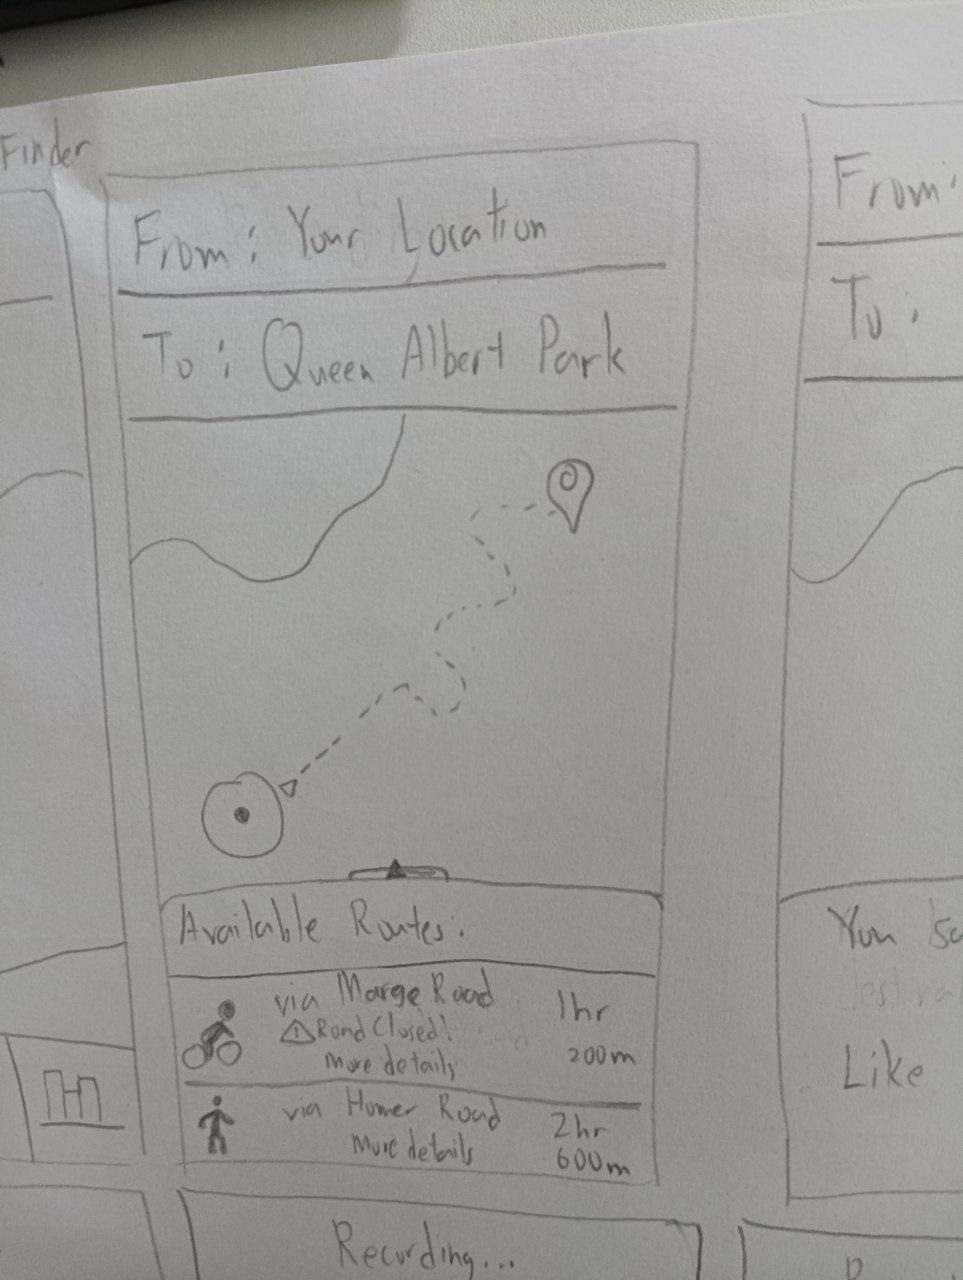 Finder
From: Your Location
To: Queen Albert Park
Available Routes:
via Marge Road 1hr
Road Closed! 200m
More details
via Homer Road 2hr
More details 600m
Recording...
From:
To:
You
Like